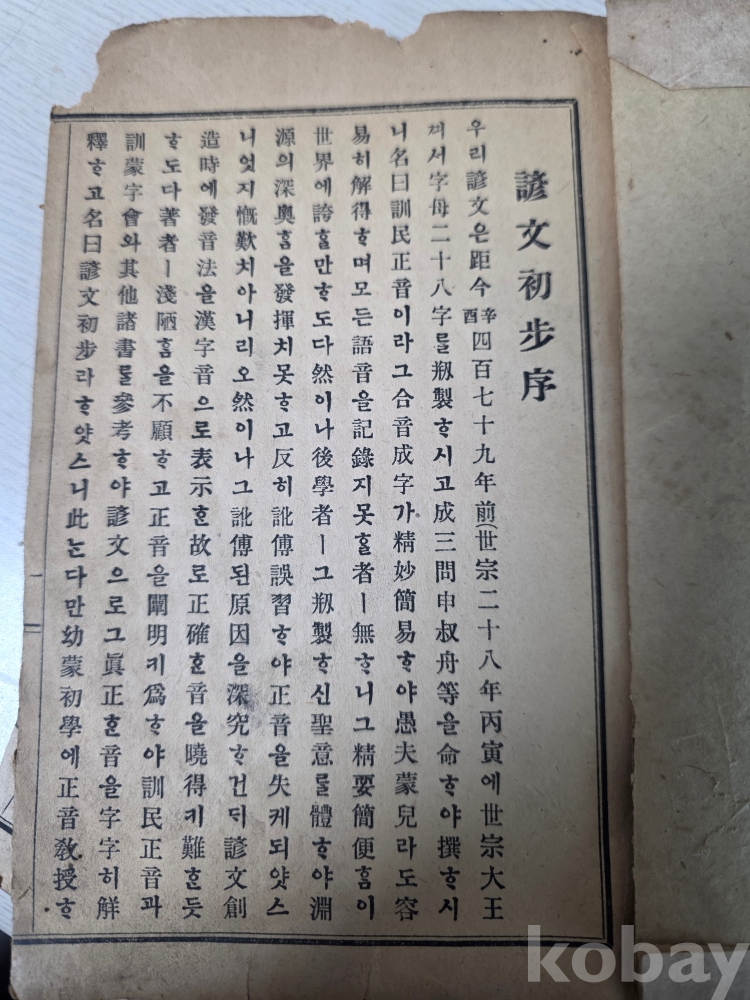 諺文初步序
우리諺文은距今辛酉四百七十九年前(世宗二十八年丙寅에世宗大王
ᄭᅦ서字母二十八字를刱製ᄒᆞ시고成三問申叔舟等을命ᄒᆞ야撰ᄒᆞ시
니名曰訓民正音이라그合音成字가精妙簡易ᄒᆞ야愚夫蒙兒라도容
易히解得ᄒᆞ며모든語音을記錄지못ᄒᆞᆯ者ㅣ無ᄒᆞ니그精要簡便ᄒᆞᆷ이
世界에誇ᄒᆞᆯ만ᄒᆞ도다然이나後學者ㅣ그刱製ᄒᆞ신聖意를體ᄒᆞ야淵
源의深奧ᄒᆞᆷ을發揮치못ᄒᆞ고反히訛傅誤習ᄒᆞ야正音을失케되얏스
니엇지慨歎치아니리오然이나그訛傅된原因을深究ᄒᆞ건ᄃᆡ諺文創
造時에發音法을漢字音으로表示ᄒᆞᆫ故로正確ᄒᆞᆫ音을曉得키難ᄒᆞᆫ듯
ᄒᆞ도다著者ㅣ淺陋ᄒᆞᆷ을不顧ᄒᆞ고正音을闡明키爲ᄒᆞ야訓民正音과
訓蒙字會와其他諸書를參考ᄒᆞ야諺文으로그眞正ᄒᆞᆫ音을字字히解
釋ᄒᆞ고名曰諺文初步라ᄒᆞ얏스니此ᄂᆞᆫ다만幼蒙初學에正音敎授ᄒᆞ
一
kobay